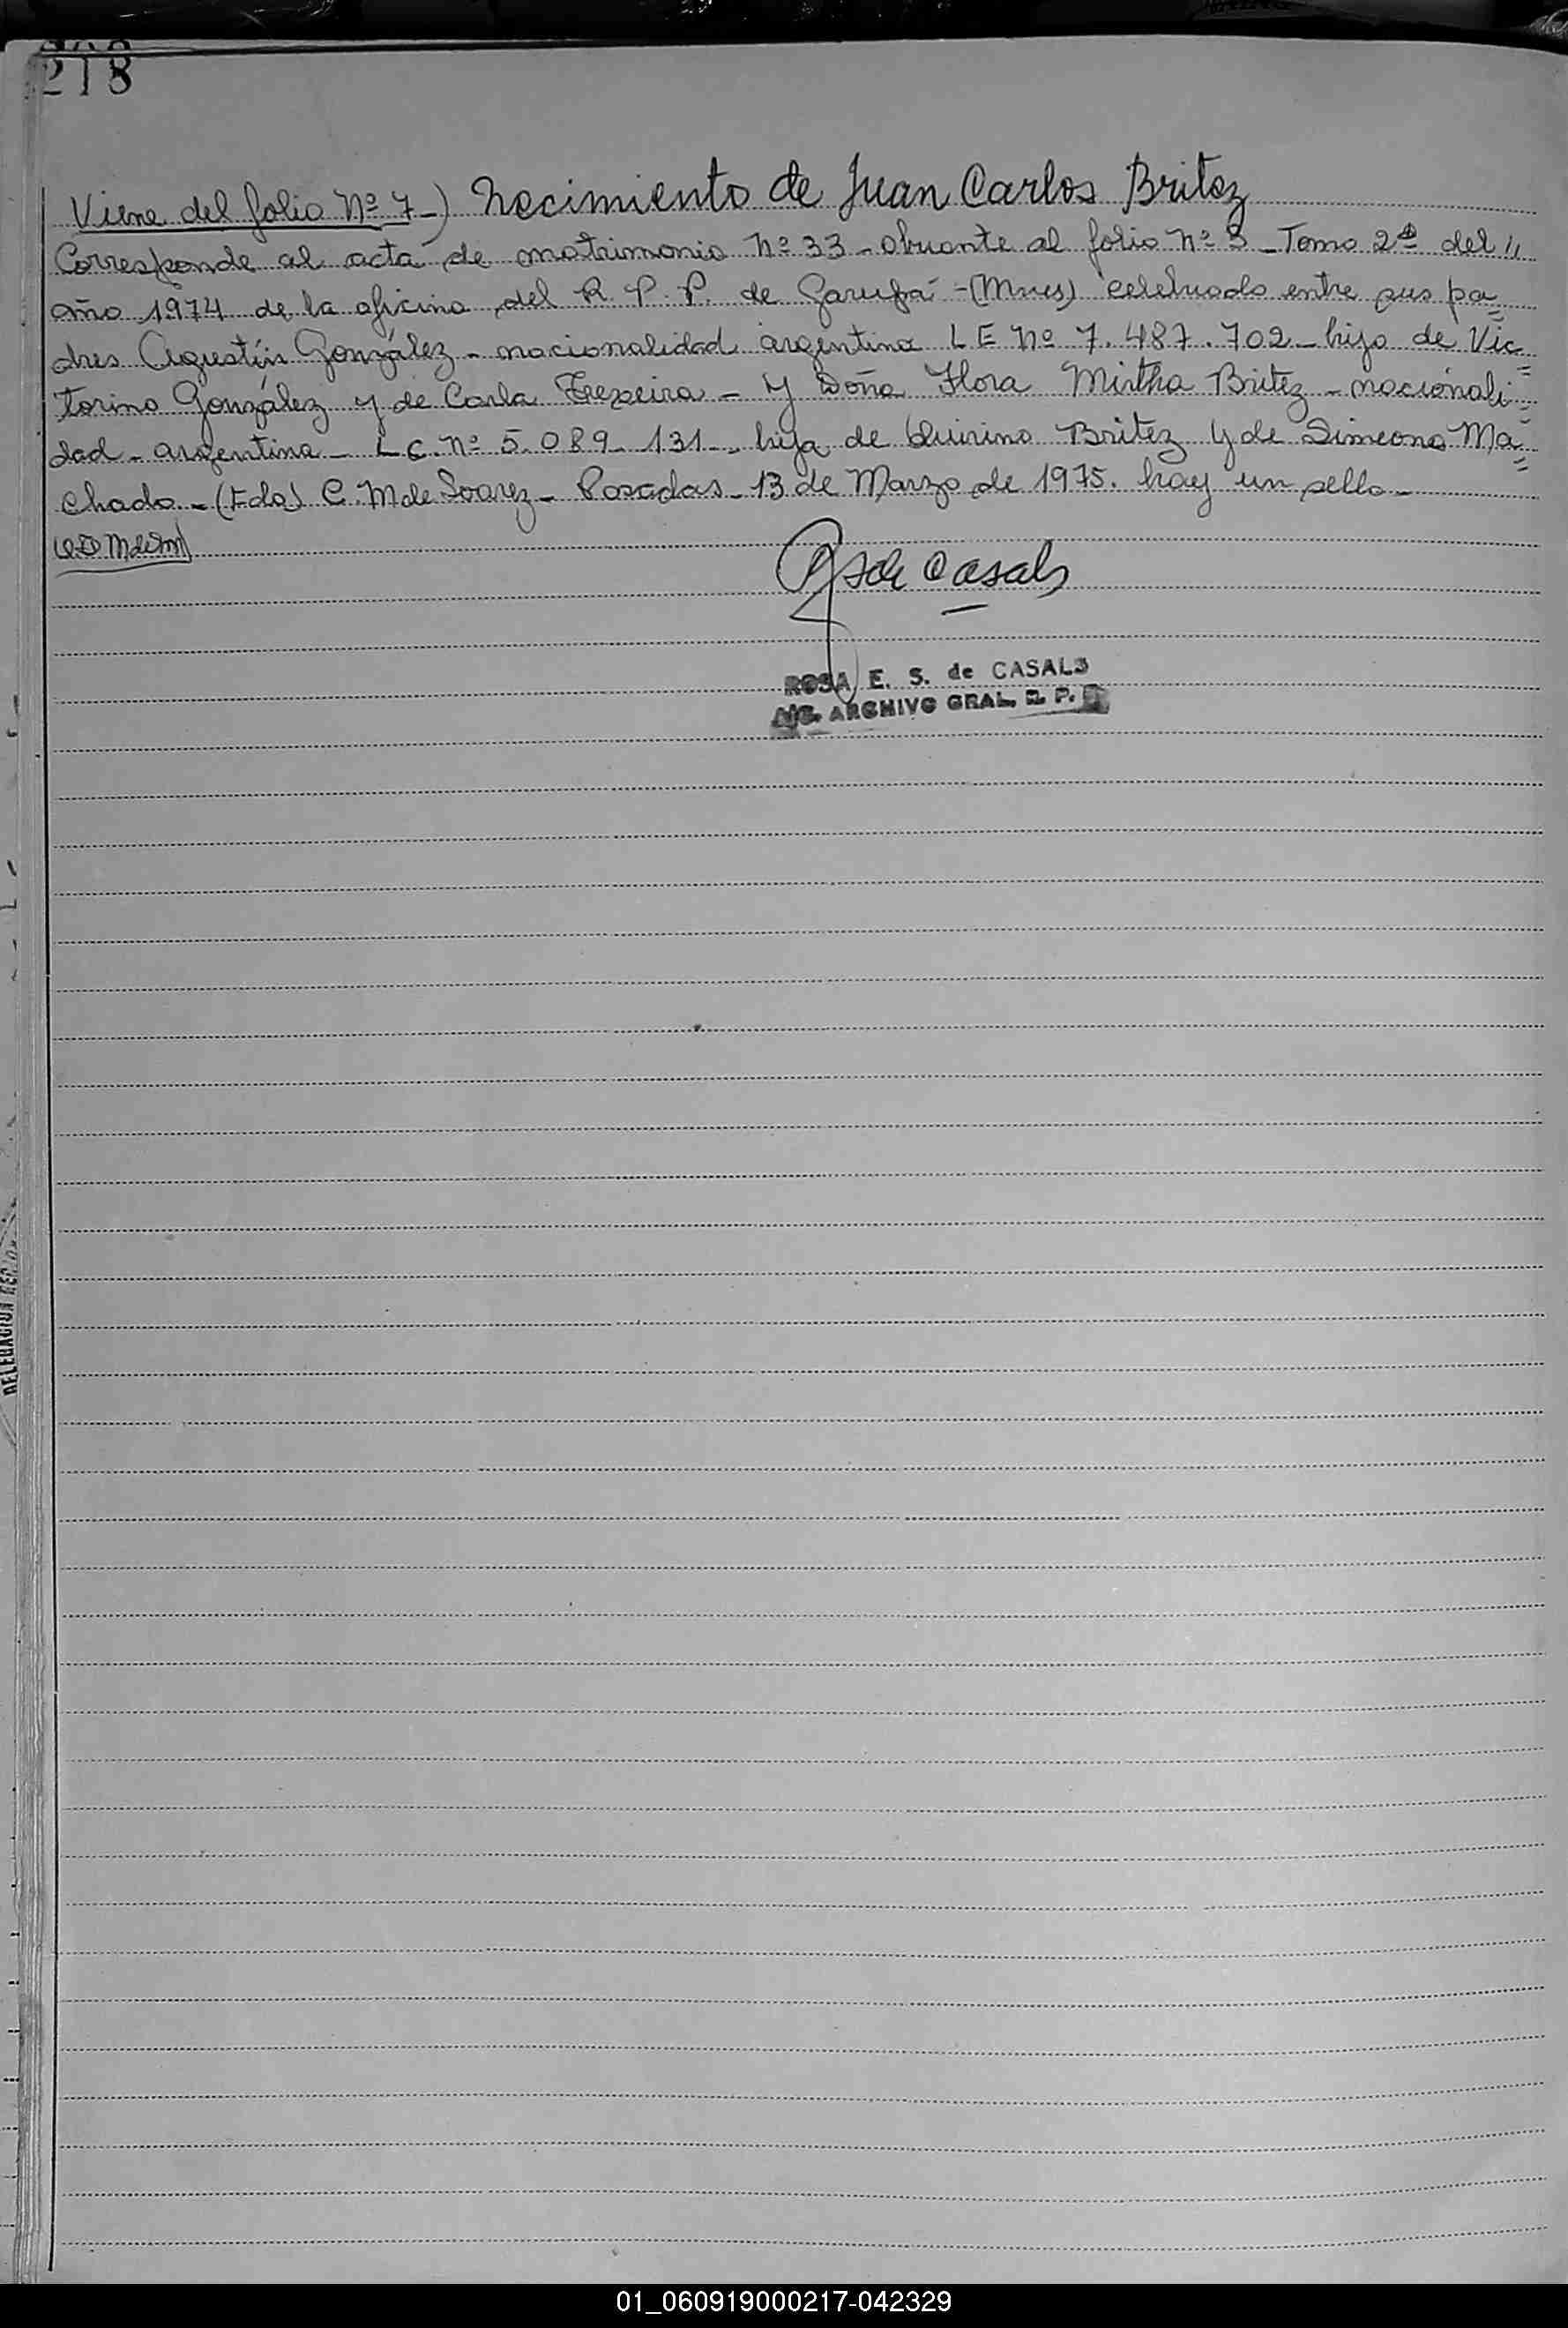 218
Viene del folio Nº 7-) Necimiento de Juan Carlos Britez
Corresponde al acta de matrimonio Nº 33 - obrante al folio Nº 3 - Tomo 2º del "
año 1974 de la oficina del R. P. P. de Garupá - (Mnes) celebrado entre sus pa=
dres Agustín González - nacionalidad argentina L E Nº 7.487.702 - hijo de Vic=
torino González y de Carla - Y Doña Flora Mirtha Britez - nacionali=
dad - argentina - L C. Nº 5.089.131 - hija de Quirino Britez y de Simeona Ma=
chado - (Fdo) C. M de Soarez - Posadas - 13 de Marzo de 1975. hay un sello -
de Casals
ROSA E. S. de CASALS
ARCHIVO GRAL. R. P.
DELEGACION
01_060919000217-042329